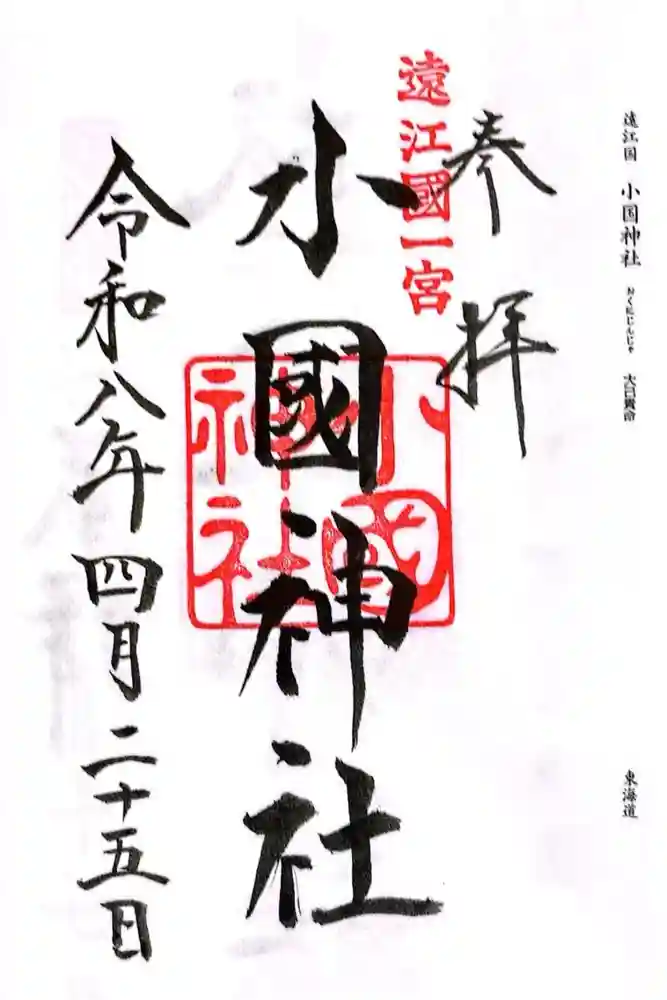 遠江国 小国神社 おくにじんじゃ 大己貴命
東海道
奉拝
遠江國一宮
小國神社
小國神社
令和八年四月二十五日